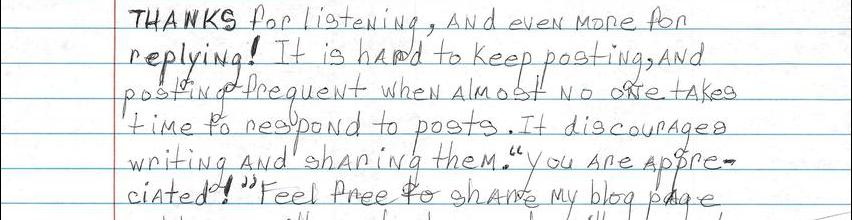 THANKS for listening, AND even more for
replying! It is hard to keep posting, AND
posting frequent when Almost NO one takes
time to respond to posts. It discourages
writing AND sharing them. "You Are Appre-
ciated!" Feel free to share My blog page